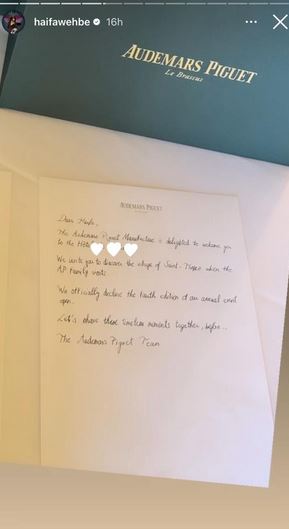 haifawehbe 16h
AUDEMARS PIGUET
Le Brassus
AUDEMARS PIGUET
Dear Haifa,
The Audemars Piguet Manufacture is delighted to welcome you
to the Hôtel
We invite you to discover the village of Saint-Tropez when the
AP Family
We officially declare the tenth edition of an annual event
open.
Let's share these timeless moments together, before...
The Audemars Piguet Team